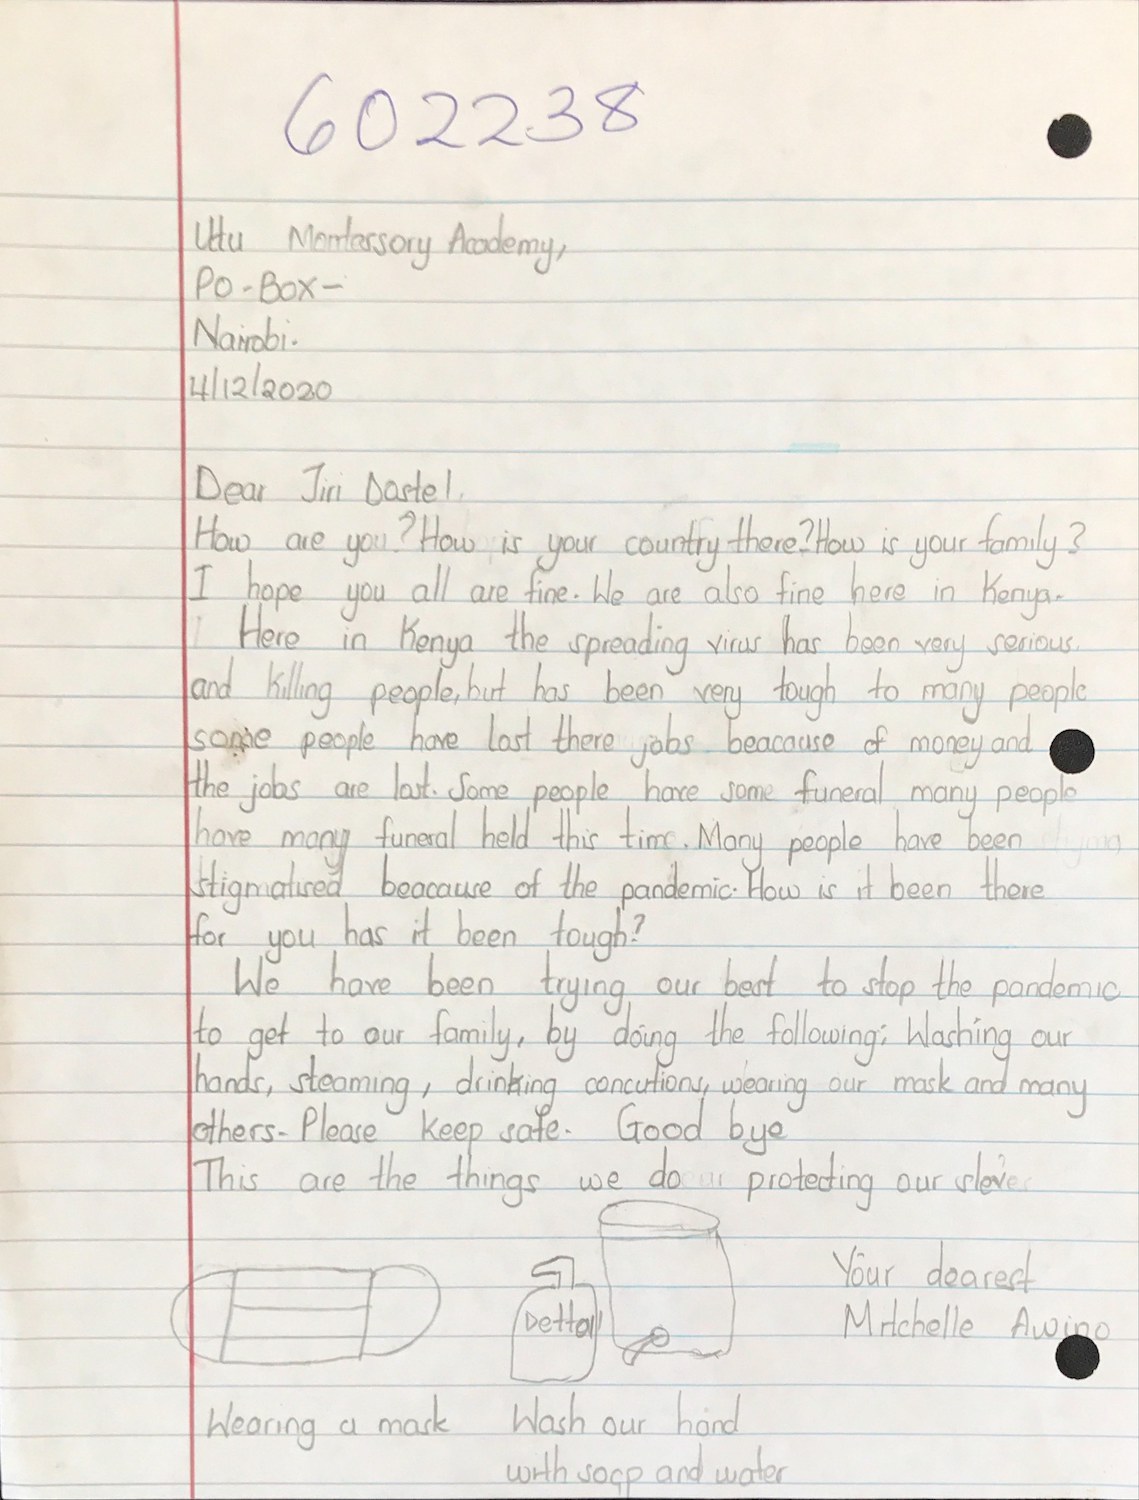 602238
Utu Montessory Academy,
PO-Box-
Nairobi.
4/12/2020
Dear Jiri Dastel.
How are you? How is your country there? How is your family?
I hope you all are fine. We are also fine here in Kenya.
Here in Kenya the spreading virus has been very serious.
and killing people, but has been very tough to many people
some people have lost there jobs beacause of money and
the jobs are lost. Some people have some funeral many people
have many funeral held this time. Many people have been
stigmatised beacause of the pandemic. How is it been there
for you has it been tough?
We have been trying our best to stop the pandemic
to get to our family, by doing the following; Washing our
hands, steaming, drinking concutions, wearing our mask and many
others. Please keep safe. Good bye
This are the things we do protecting our sleves
Dettol
Your dearest
Mitchelle Awino
Wearing a mask
Wash our hand
with soap and water